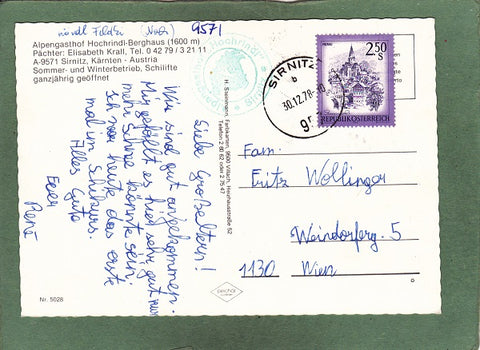 nördl. Feldki. (Nock) 9571
Alpengasthof Hochrindl-Berghaus (1600 m)
Pächter: Elisabeth Krall, Tel. 0 42 79 / 3 21 11
A-9571 Sirnitz, Kärnten - Austria
Sommer- und Winterbetrieb, Schilifte
ganzjährig geöffnet
Liebe Großeltern!
Wir sind gut angekommen.
Mir gefällt es hier sehr gut nur
mehr Schnee könnte sein.
Ich war heute das erste
mal im Schikurs.
Alles Gute
Euer
René
Nr. 5028
H. Steinmann, Farbkarten, 9500 Villach, Heidenfeldstraße 52
Telefon 2 60 62 oder 2 75 47
SIRNITZ
b
30.12.78-
95
2.50
S
REPUBLIK ÖSTERREICH
Fam.
Fritz Wollinger
Weindorferg. 5
1130 Wien